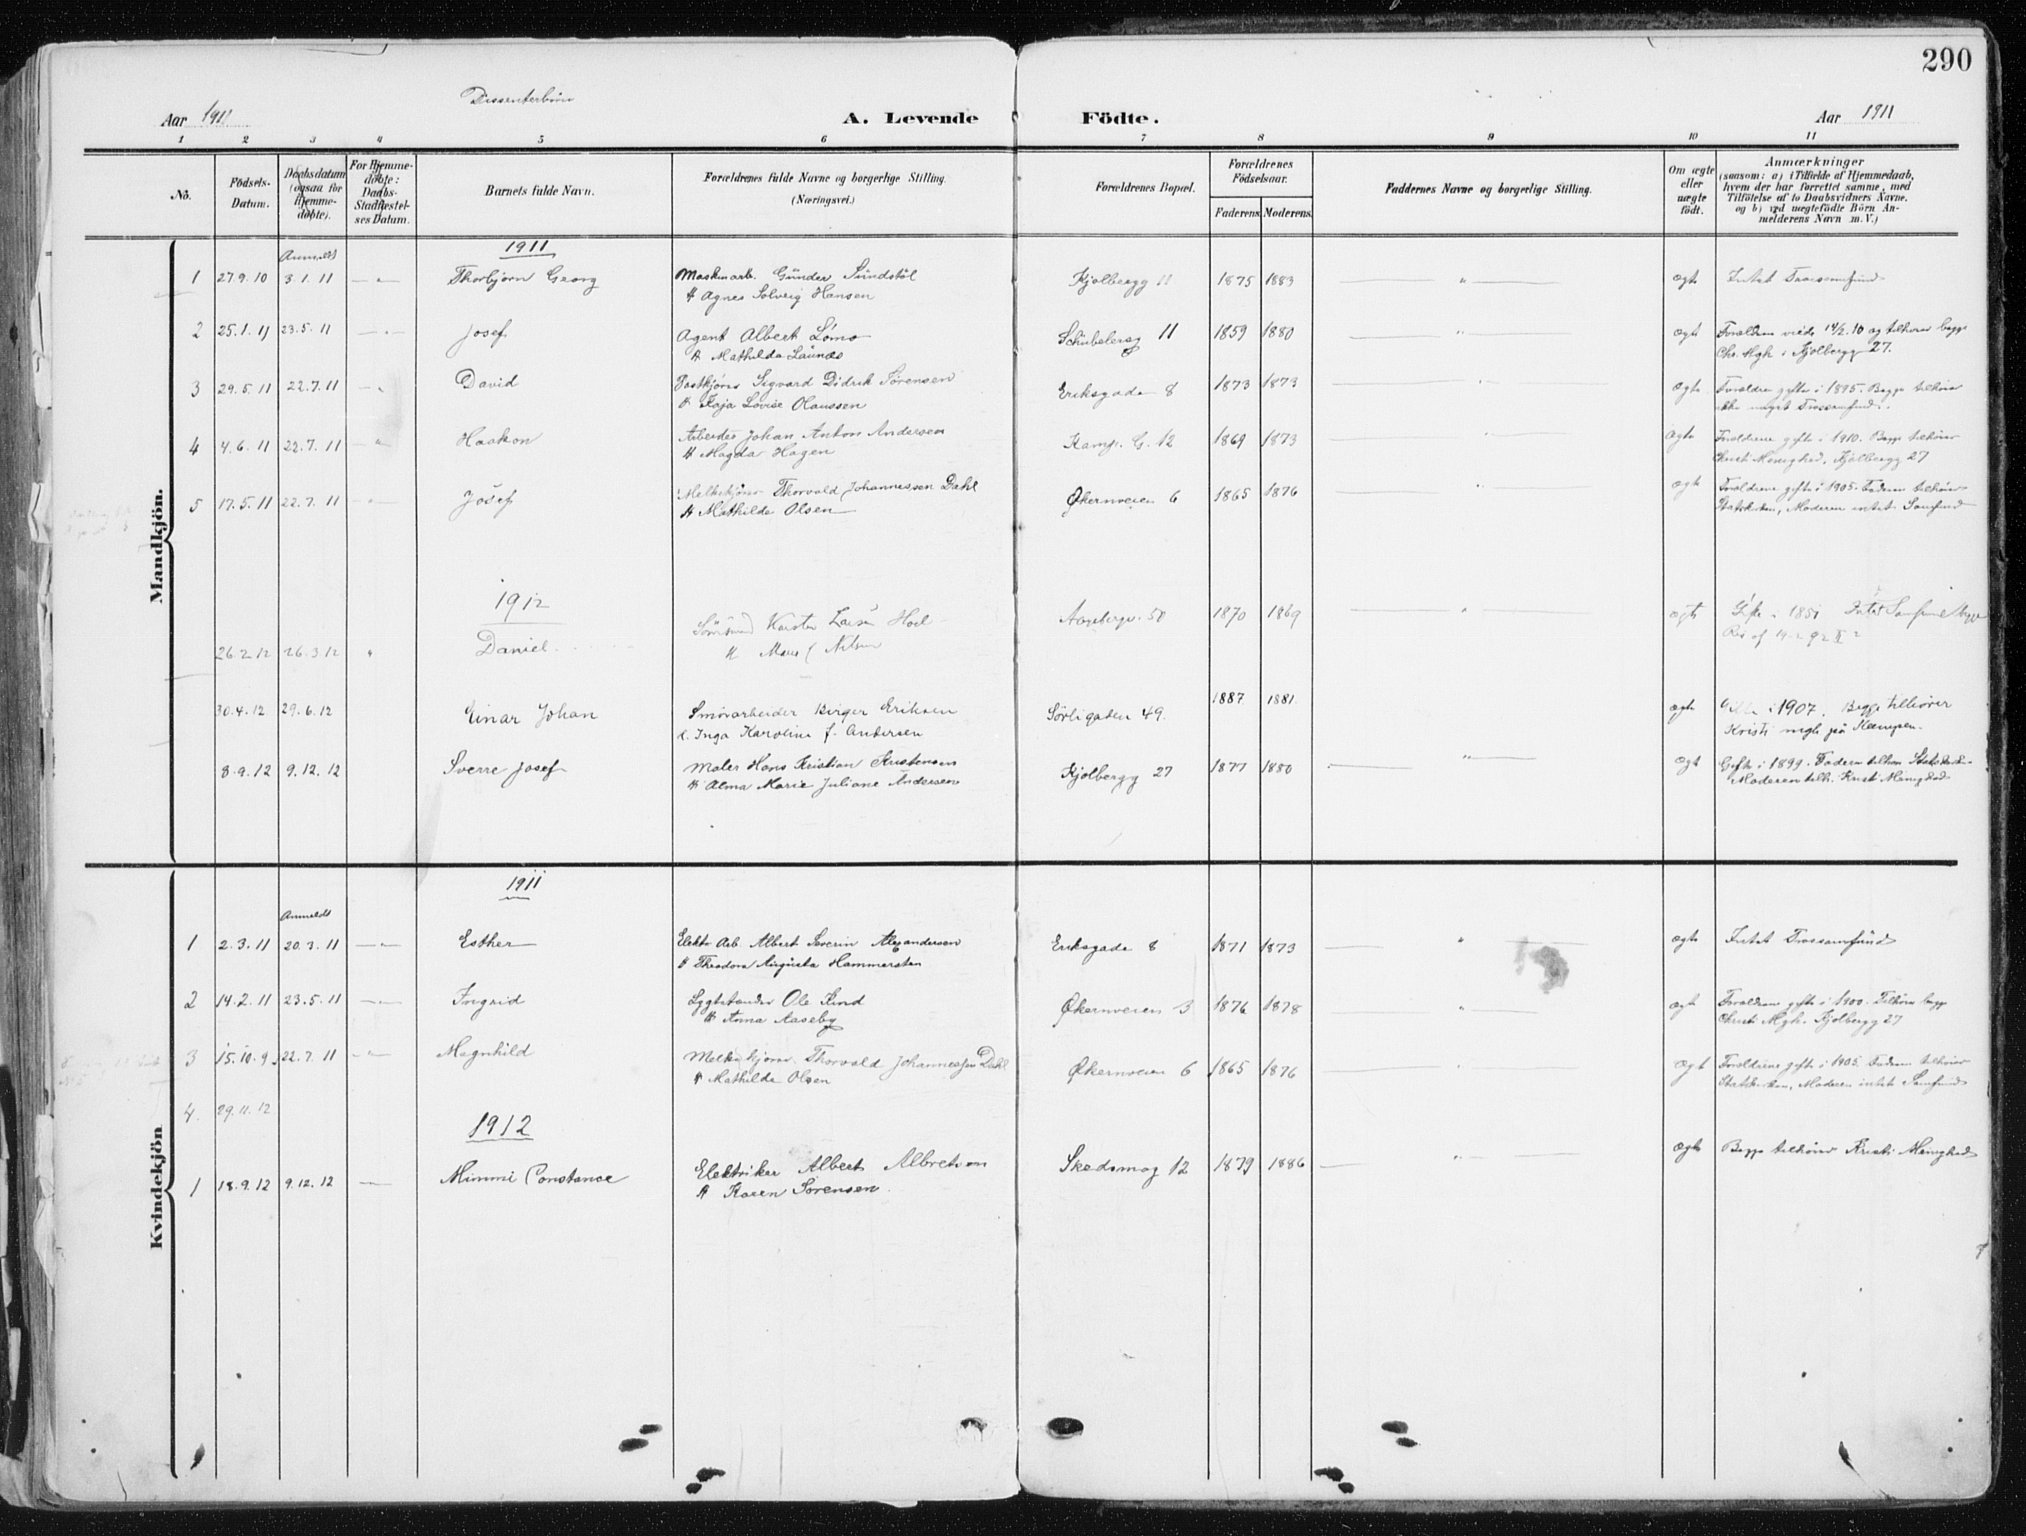 290
Dissenterbörn
Aar 1911
A. Levende Födte.
Aar 1911
1 2 3 4 5 6 7 8 9 10 11
No.
Födsels-Datum.
Daabsdatum (ogsaa for Hjemme-döbte).
For Hjemme-döbte: Daabs-Stadfæstel-ses Datum.
Barnets fulde Navn.
Forældrenes fulde Navne og borgerlige Stilling.
(Næringsvei.)
Forældrenes Bopæl.
Forældrenes Födselsaar.
Faderens. Moderens.
Faddernes Navne og borgerlige Stilling.
Om ægte eller uægte födt.
Anmærkninger
(saasom: a) i Tilfælde af Hjemmedaab, hvem der har forrettet samme, med Tilföielse af to Daabsvidners Navne, og b) ved uægtefödte Börn An-melderens Navn m. V.)
Mandkjön.
1911
Anmeldt
1 27.9.10 3.1.11 Thorbjørn Georg Maskinarb. Gunder Sundstöl Kjølbergg 11 1875 1883 ægte Intet Trossamfund
H Agnes Solveig Hansen
2 25.1.11 23.5.11 Josef Agent Albert Lømo Schübelersg 11 1859 1880 ægt Forældrene viede 14/2.10 og tilhører begge
H Mathilde Chr. Mgh i Kjølbergg 27.
3 29.5.11 22.7.11 David Postkjører Sigvard Didrik Sørensen Eriksgade 8 1873 1873 ægte Forældre gifte i 1895. Begge tilhører
H Kaja Lovise Olaussen ikke noget Trossamfund.
4 4.6.11 22.7.11 Haakon Arbeider Johan Anton Andersen Kampe. G. 12 1869 1873 ægte Forældrene gifte i 1910. Begge tilhører
H Magda Hagen Christi Menighed, Kjølbergg 27
5 17.5.11 22.7.11 Josef Melkekjører Thorvald Johannessen Dahl Økernveien 6 1865 1876 ægt Forældrene gifte i 1905. Faderen tilhører
H Mathilde Olsen Statskirken, Moderen intet Samfund
1912
26.2.12 26.3.12 Daniel Karsten Hoel 50 1870 1869 ægte Intet Samfund begge
H Nilsen
30.4.12 29.6.12 Einar Johan Smörarbeider Birger Eriksen Sörligaden 49. 1887 1881 ægte i 1907. Begge tilhörer
Inga Karoline f. Andersen Kristi mgh på Kampen.
8.9.12 9.12.12 Sverre Josef Maler Hans Kristian Kristensen Kjølbergg 27 1877 1880 ægt Gifte i 1899. Faderen tilhører Statskirken
H Alma Marie Juliane Andersen Moderen tilh. Kristi Menighed
Kvindekjön
1911
Anmeldt
1 2.3.11 20.3.11 Esther Elektr Arb. Albert Severin Alexandersen Eriksgade 8 1871 1873 ægte Intet Trossamfund
H Theodora Augusta Hammersten
2 14.2.11 23.5.11 Ingrid Lygtetænder Ole Lind Økernveien 3 1876 1878 ægt Forældrene gifte i 1900. Tilhører begge
H Anna Aaseby Christi Mgh. Kjølbergg 27
3 15.10.9 22.7.11 Magnhild Melkekjører Thorvald Johannessen Dahl Økernveien 6 1865 1876 ægt Forældrene gifte i 1905. Faderen tilhører
H Mathilde Olsen Statskirken, Moderen intet Samfund
4. 29.11.12
1912
1 18.9.12 9.12.12 Mimmi Constance Elektriker Albert Albretsen Skedsmog 12 1879 1886 ægte Begge tilhører Kristi Menighed
H Karen Sørensen.